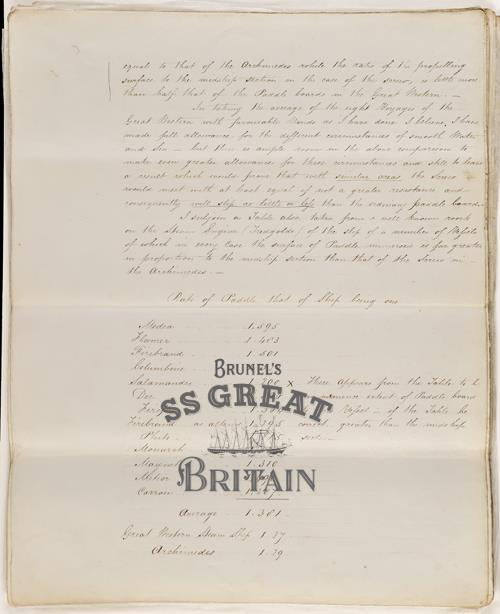 equal to that of the Archimedes while the ratio of the propelling
surface to the midship section in the case of the screw, is little more
than half that of the Paddle boards in the Great Western. —
In taking the average of the eight Voyages of the
Great Western with favourable Winds as I have done I believe, I have
made full allowance for the different circumstances of smooth Water
and Sea — but there is ample room in the above comparison to
make even greater allowance for these circumstances and still to leave
a result which would prove that with similar areas the Screw
would meet with at least equal if not a greater resistance and
consequently will slip as little or less than the ordinary paddle board.
I subjoin a Table also taken from a well known work
on the Steam Engine (Tredgolds) of the slip of a number of Vessels
of which in every case the surface of Paddle immersed is far greater
in proportion to the midship section than that of the Screw in
the Archimedes. —
Rate of Paddle that of Ship being one
Medea 1.595
Flamer 1.403
Firebrand 1.501
Columbine
Salamander 1.200 x There appears from the Table to be
Dee immense extent of Paddle board
Vessel — of the Table he
Firebrand as altered greater than the midship
Pluto section
Monarch
1.310
Meteor
Carron
Average 1.301
Great Western Steam Ship 1.27
Archimedes 1.29
BRUNEL'S
SS GREAT
BRITAIN